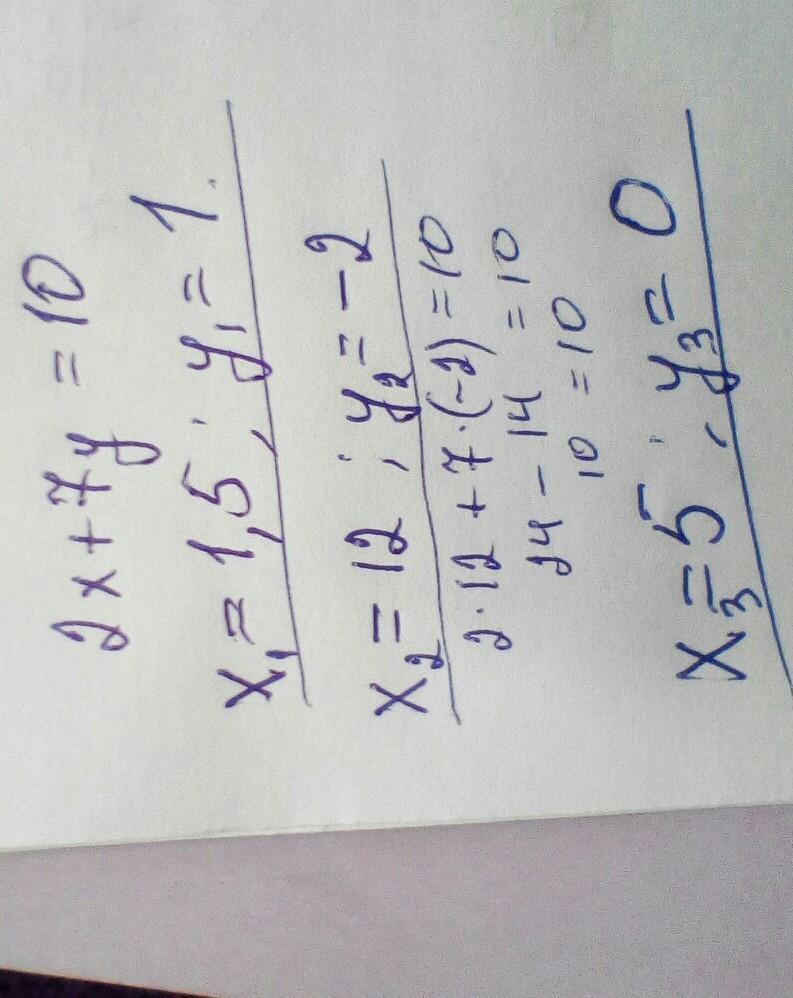 2x + 7y = 10
x₁ = 1,5 ; y₁ = 1.
x₂ = 12 ; y₂ = -2
2·12 + 7·(-2) = 10
24 - 14 = 10
10 = 10
x₃ = 5 ; y₃ = 0